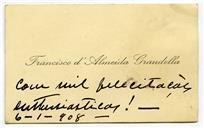 Francisco d'Almeida Grandella
Com mil felicitações
enthusiasticas! —
6-1-908 -